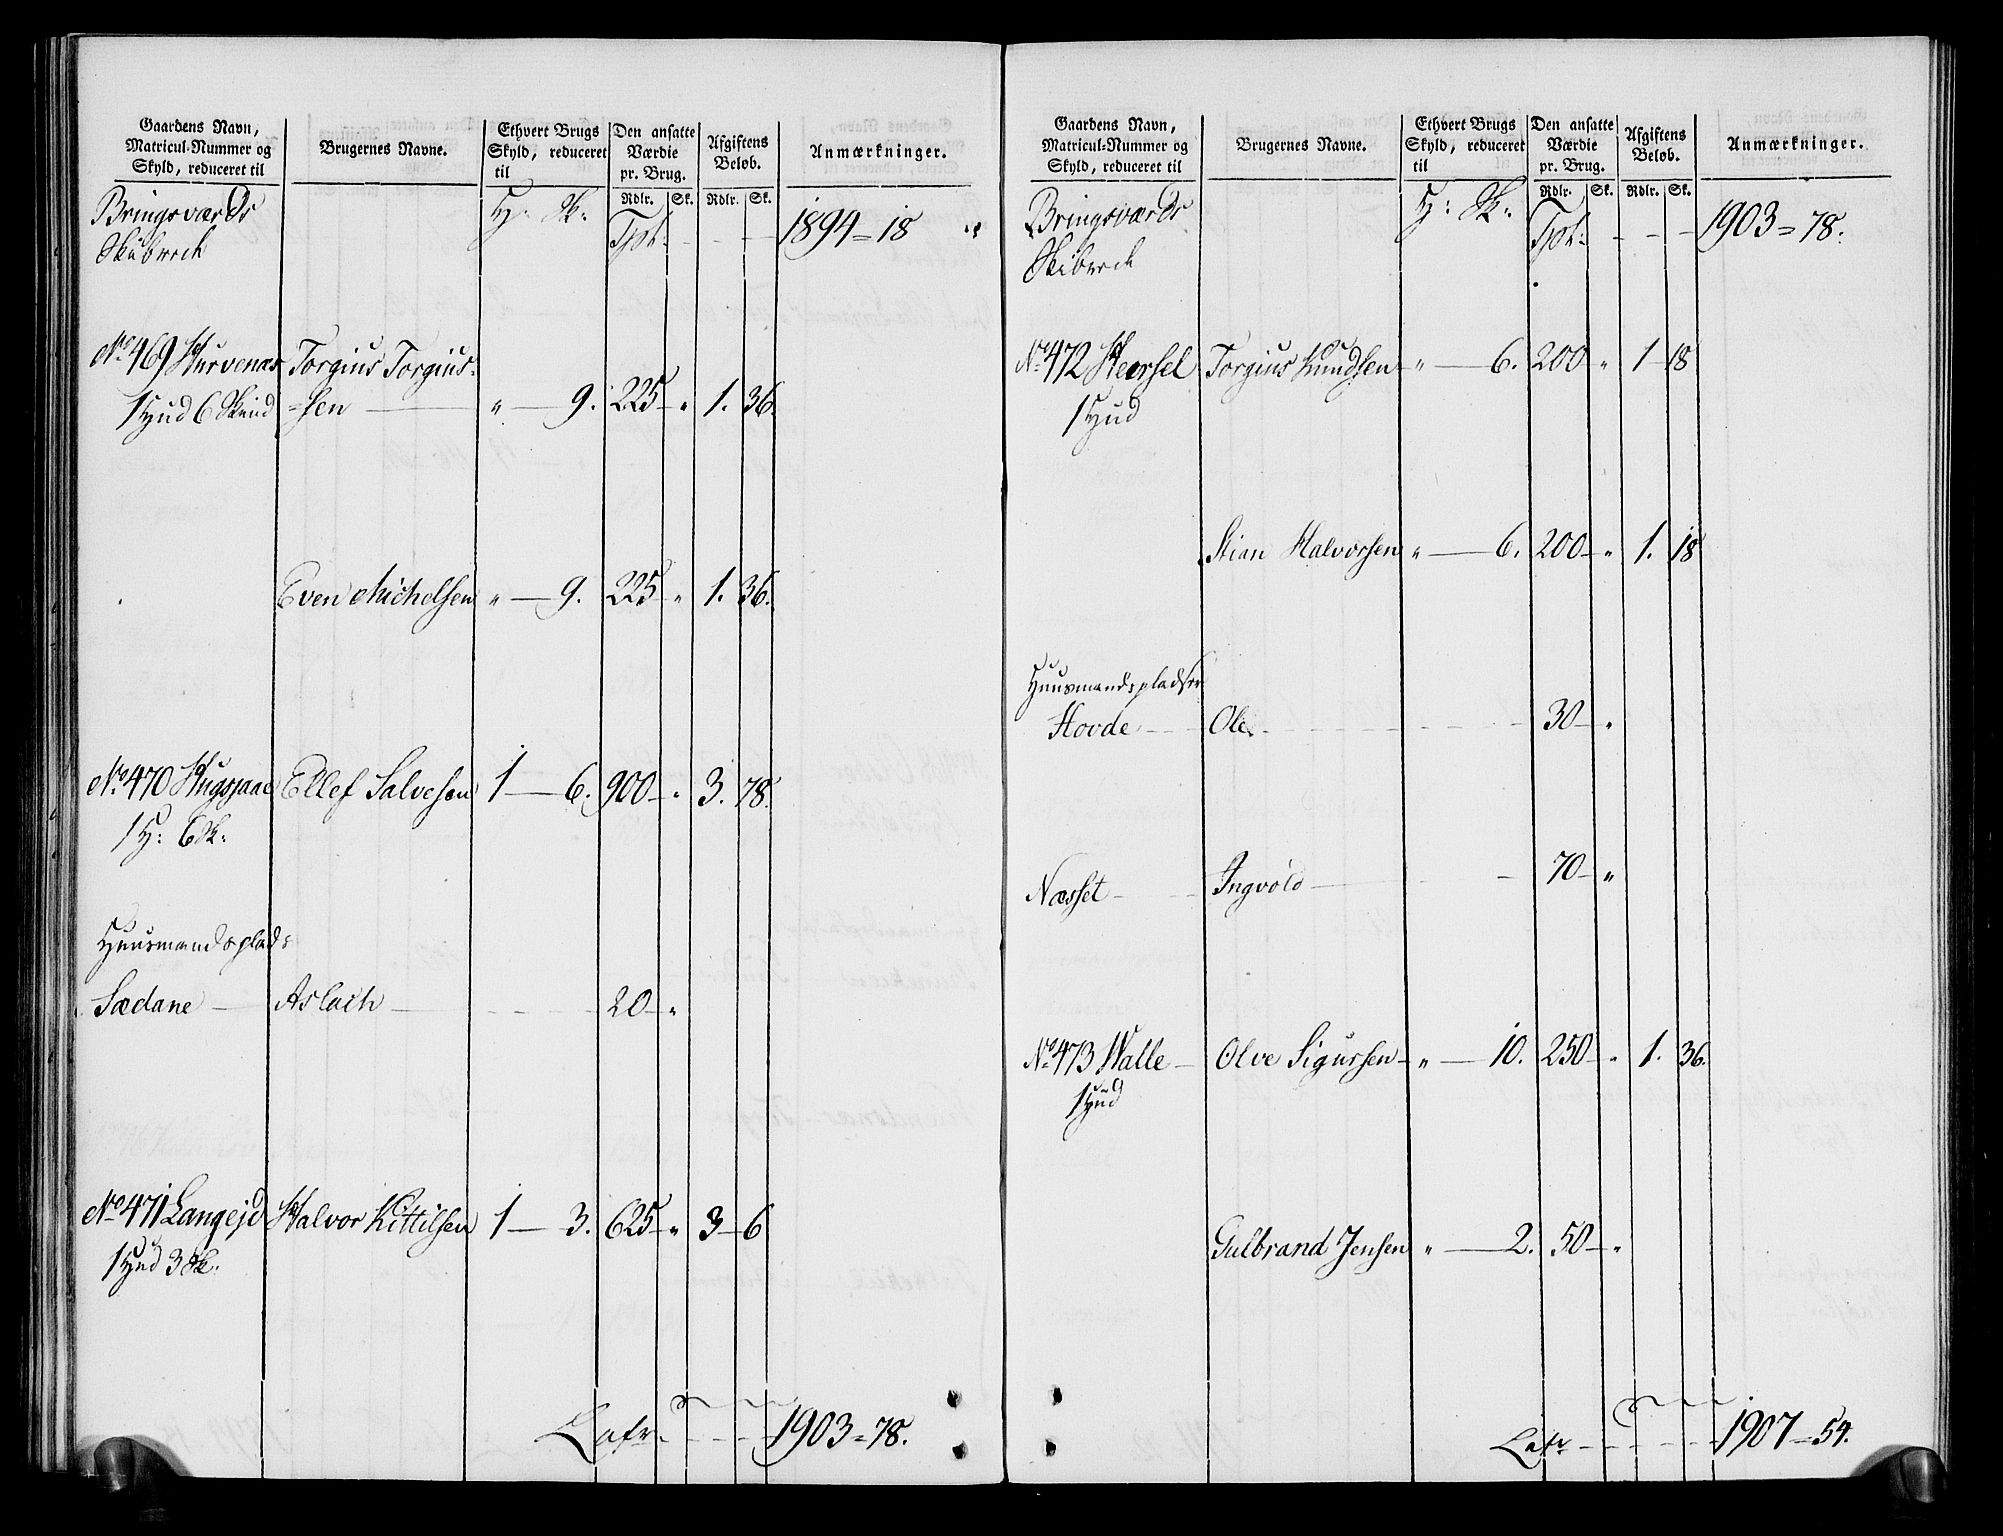 Gaardens Navn, Matricul-Nummer og Skyld, reduceret til | Brugernes Navne. | Ethvert Brugs Skyld, reduceret til | Den ansatte Værdie pr. Brug. | Afgiftens Beløb. | Anmærkninger.
Rdlr. Sk. Rdlr. Sk.
Bringsværds H: Sk: Tpt: - - - 1894=18
Skibreck
No 469 Hurvenæs Torgius Torgius-
1 Hud 6 Skind =sen — " — 9. 225 — " 1. 36.
Even Michelsen " — 9. 225 — " 1. 36.
No 470 Hugsjaae Ellef Salvesen 1 — 6. 900 — " 3. 78.
1 H: 6 Sk:
Huusmandsplads
Sædane — Aslach — 20 — "
No 471 Langejd Halvor Kittilsen 1 — 3. 625 — " 3 — 6
1 Hud 3 Sk:
Latr - - - 1903=78.
Gaardens Navn, Matricul-Nummer og Skyld, reduceret til | Brugernes Navne. | Ethvert Brugs Skyld, reduceret til | Den ansatte Værdie pr. Brug. | Afgiftens Beløb. | Anmærkninger.
Rdlr. Sk. Rdlr. Sk.
Bringsværds H: Sk: Tpt: - - - 1903=78.
Skibreck
No 472 Heersel Torgius Knudsen " — 6. 200 — " 1 — 18
1 Hud
Stian Halvorsen " — 6. 200 — " 1. 18
Huusmandspladser
Hovde — Ole. - - - 30 — "
Næsset — Ingvold — 70 — "
No 473 Walle — Olve Sigursen — " — 10. 250 — " 1. 36.
1 Hud
Gulbrand Jensen " — 2. 50 — "
Latr - - - 1907=54.